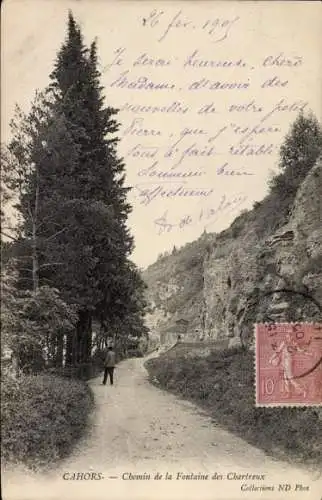 26 fev. 1905
Je serai heureuse, chère
Madame, d'avoir des
nouvelles de votre petit
Pierre, que j'espère
tout à fait rétabli
Souvenir bien
affectueux
10
CAHORS — Chemin de la Fontaine des Chartreux
Collections ND Phot